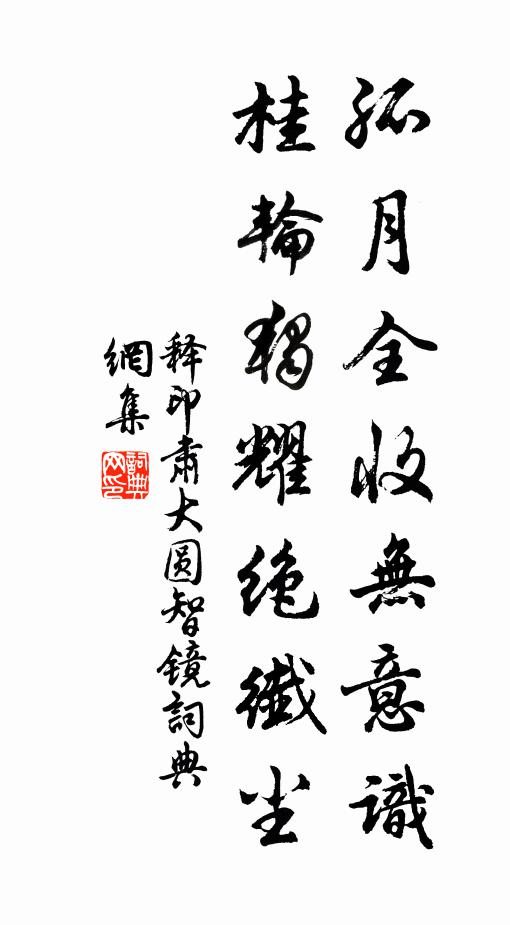 孤月全收無意識
桂輪獨耀絶纖尘
释印肅大圆智镜詞典
網集
詞典網印